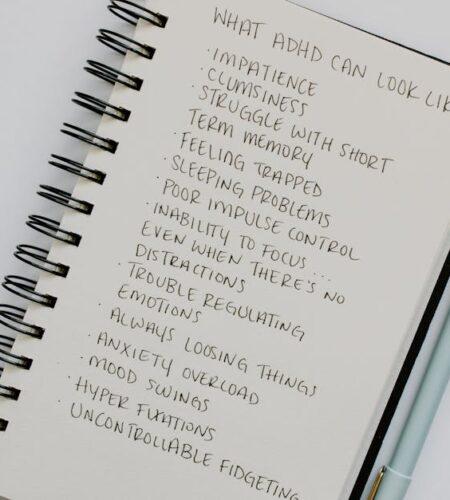 WHAT ADHD CAN LOOK LIK
· IMPATIENCE
· CLUMSINESS
· STRUGGLE WITH SHORT
TERM MEMORY
· FEELING TRAPPED
· SLEEPING PROBLEMS
· POOR IMPULSE CONTROL
· INABILITY TO FOCUS...
EVEN WHEN THERE'S NO
DISTRACTIONS
· TROUBLE REGULATING
EMOTIONS
· ALWAYS LOOSING THINGS
· ANXIETY OVERLOAD
· MOOD SWINGS
· HYPER FIXATIONS
· UNCONTROLLABLE FIDGETING